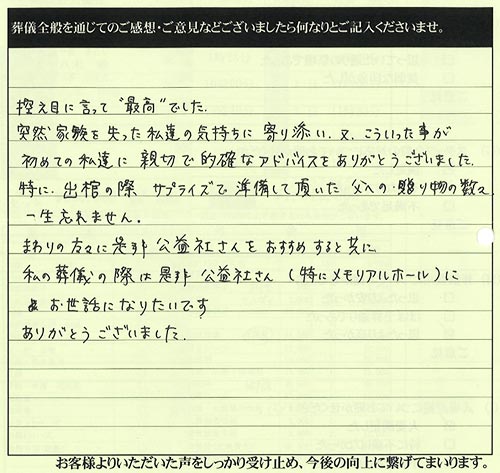 葬儀全般を通じてのご感想・ご意見などございましたら何なりとご記入くださいませ。
控え目に言って"最高"でした。
突然家族を失った私達の気持ちに寄り添い、又、こういった事が
初めての私達に親切で的確なアドバイスをありがとうございました。
特に、出棺の際 サプライズで準備して頂いた父への贈り物の数々
一生忘れません。
まわりの友々に是非公益社さんをおすすめすると共に
私の葬儀の際は是非公益社さん(特にメモリアルホール)に
お世話になりたいです
ありがとうございました。
お客様よりいただいた声をしっかり受け止め、今後の向上に繋げてまいります。